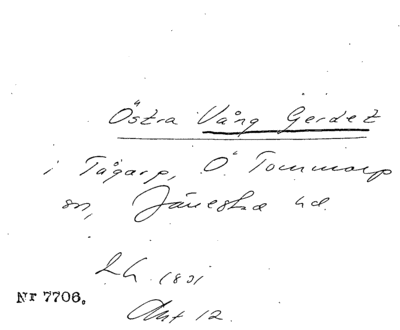 Östra Vång Gerdet
i Tågarp, Ö Tommarp
sn, Järrestad hd.
Lh 1831
Akt 12.
Nr 7706.